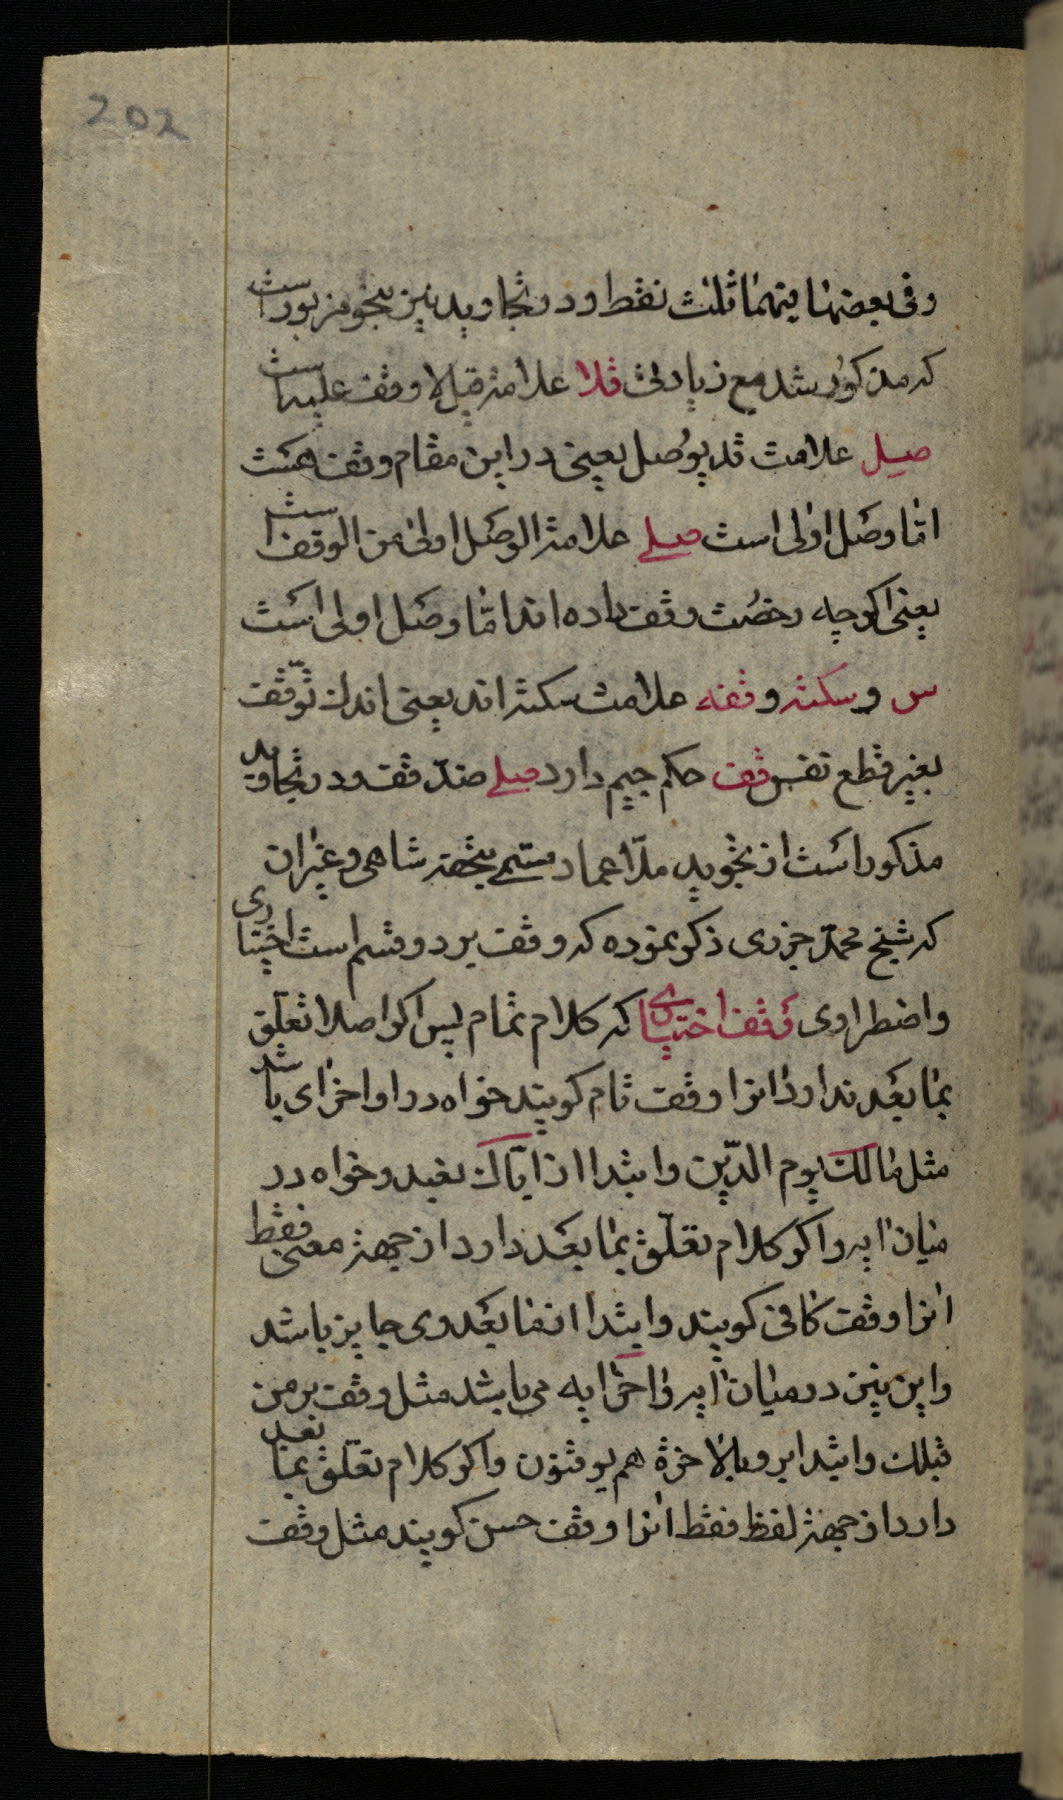 202
وفی بعضها فیهما ثلث نقط و در تجاوید نیز بنحو مزبور است
که مذکور شد مع زیادتی قلا علامة قیل لا وقف علیه است
صل علامت قد یوصل یعنی در این مقام وقف هست
امّا وصل اولی است صلے علامة الوصل اولی من الوقف است
یعنی اکرچه رخصت وقف داده اند امّا وصل اولی است
س و سکته وقفه علامت سکته اند یعنی اندک توقّف
بغیر قطع نفس قف حکم جیم دارد صلے ضدّ قف و در تجاوید
مذکور است از تجوید ملّا عماد بتحفه شاهی و غیران
که شیخ محمّد جزری ذکر نموده که وقف بر دو قسم است اختیاری
و اضطراری وقف اختیاری که کلام تمام پس اکر اصلا تعلّق
بما بعد ندارد انرا وقف تام کویند خواه در اواخر ای باشد
مثل مالک یوم الدّین و ابتدا از ایّاک نعبد و خواه در
میان ایه و اکر کلام تعلّق بما بعد دارد از جهة معنی فقط
انرا وقف کافی کویند و ابتدا از ما بعد وی جایز باشد
و این نیز در میان ایه و اخر ایه می باشد مثل وقف بر من
قبلک و ابتدا بر و بالاخرة هم یوقنون و اکر کلام تعلّق بما بعد
دارد از جهة لفظ فقط انرا وقف حسن کویند مثل وقف